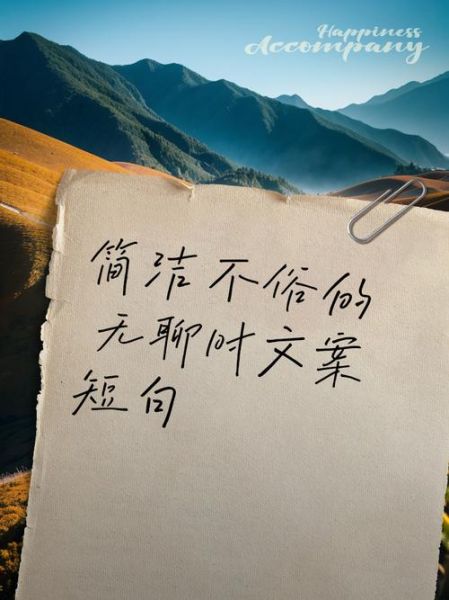 Happiness
Accompany
简洁不俗的
无聊时文案
短句